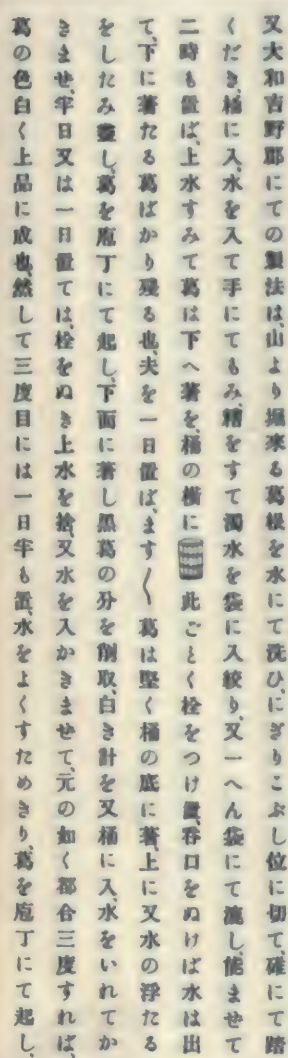 又大和吉野郡にての製法は、山より堀來る葛根を水にて洗ひ、にぎりこぶし位に切て、碓にて踏
くだき、桶に入、水を入て手にてもみ、糟をすて濁水を袋に入絞り、又一へん袋にて漉し、能ませて
二時も置ば、上水すみて葛は下へ著を、桶の横に此ごとく栓をつけ置、呑口をぬけば水は出
て、下に著たる葛ばかり殘る也、夫を一日置ば、ます〱葛は堅く桶の底に著、上に又水の浮たる
をしたみ盡し、葛を庖丁にて起し、下面に著し黑葛の分を削取、白き計を又桶に入、水をいれてか
きませ、半日又は一日置ては、栓をぬき上水を捨、又水を入かきませて、元の如く都合三度すれば、
葛の色白く上品に成也、然して三度目には一日半も置、水をよくすためきり、葛を庖丁にて起し、